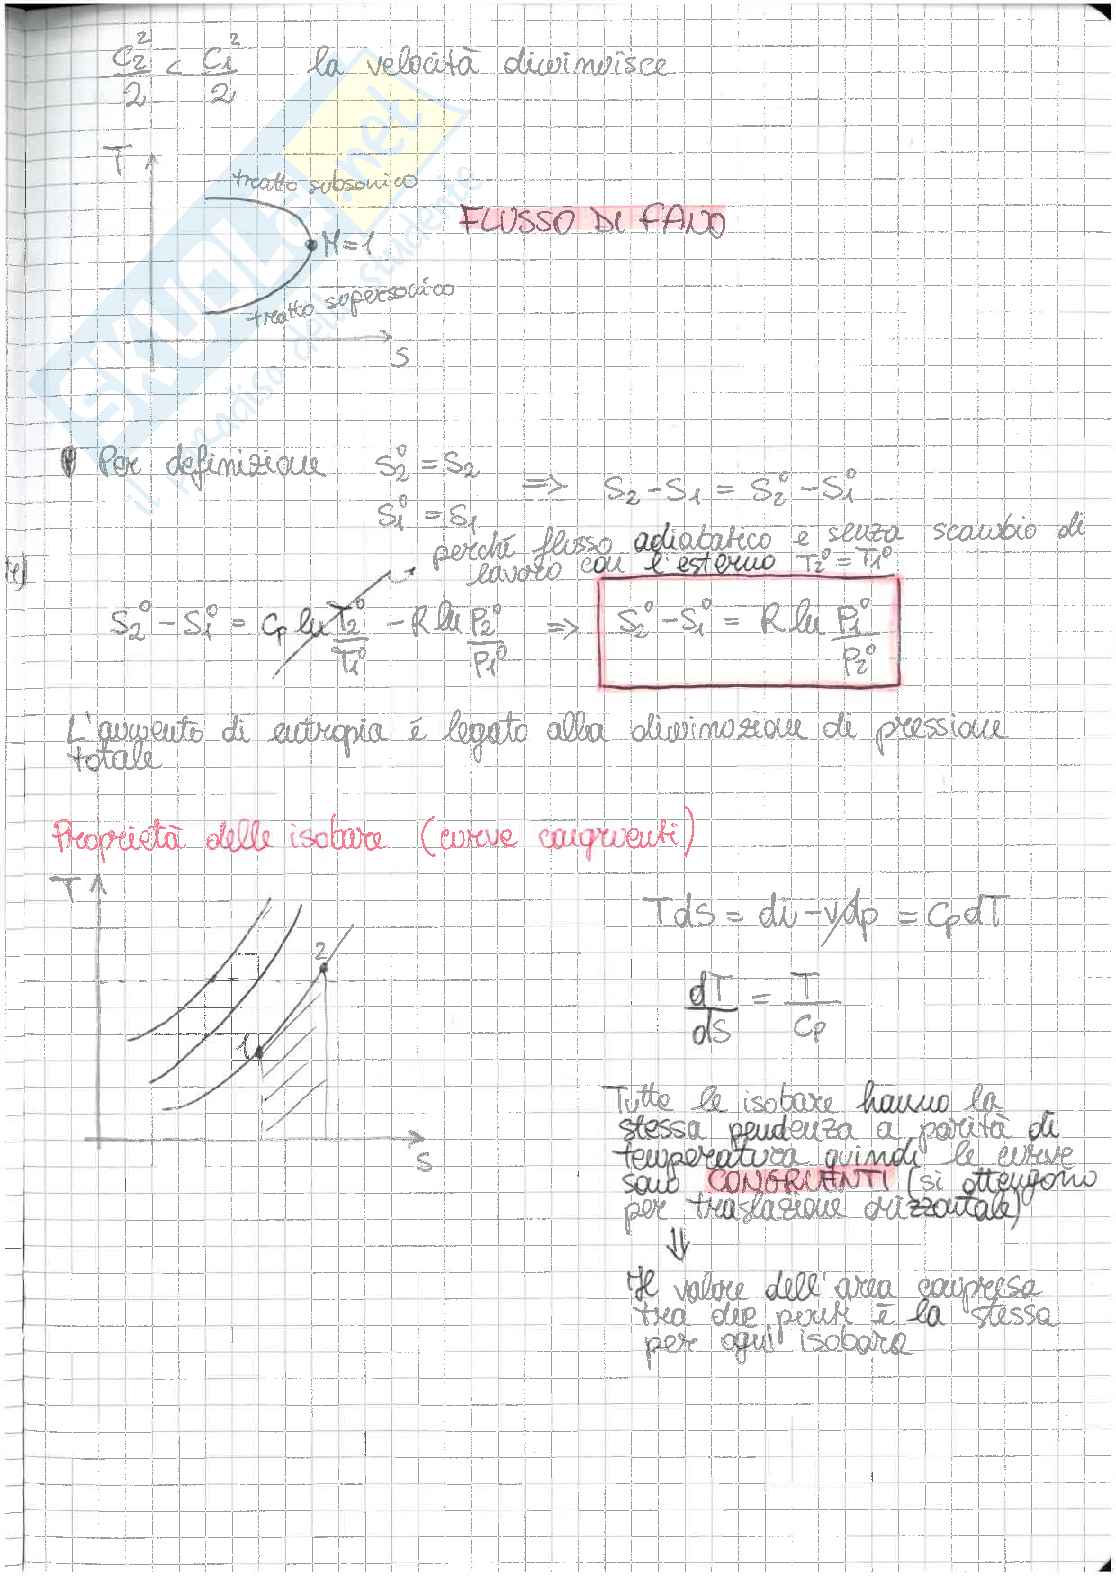 C₂²/2 < C₁²/2 la velocità diminuisce
T
tratto subsonico
FLUSSO DI FANO
M=1
tratto supersonico
S
SKUOLA.net
il paradiso dello studente
Per definizione S₂° = S₂
S₁° = S₁ => S₂ - S₁ = S₂° - S₁°
perché flusso adiabatico e senza scambio di
lavoro con l'esterno T₂° = T₁°
S₂° - S₁° = Cp ln T₂°/T₁° - R ln P₂°/P₁° => S₂° - S₁° = R ln P₁°/P₂°
L'aumento di entropia è legato alla diminuzione di pressione
totale
Proprietà delle isobare (curve congruenti)
T
2
1
S
TdS = di - vdp = Cp dT
dT/dS = T/Cp
Tutte le isobare hanno la
stessa pendenza a parità di
temperatura quindi le curve
sono CONGRUENTI (si ottengono
per traslazione orizzontale)
⇓
Il valore dell'area compresa
tra due punti è la stessa
per ogni isobara